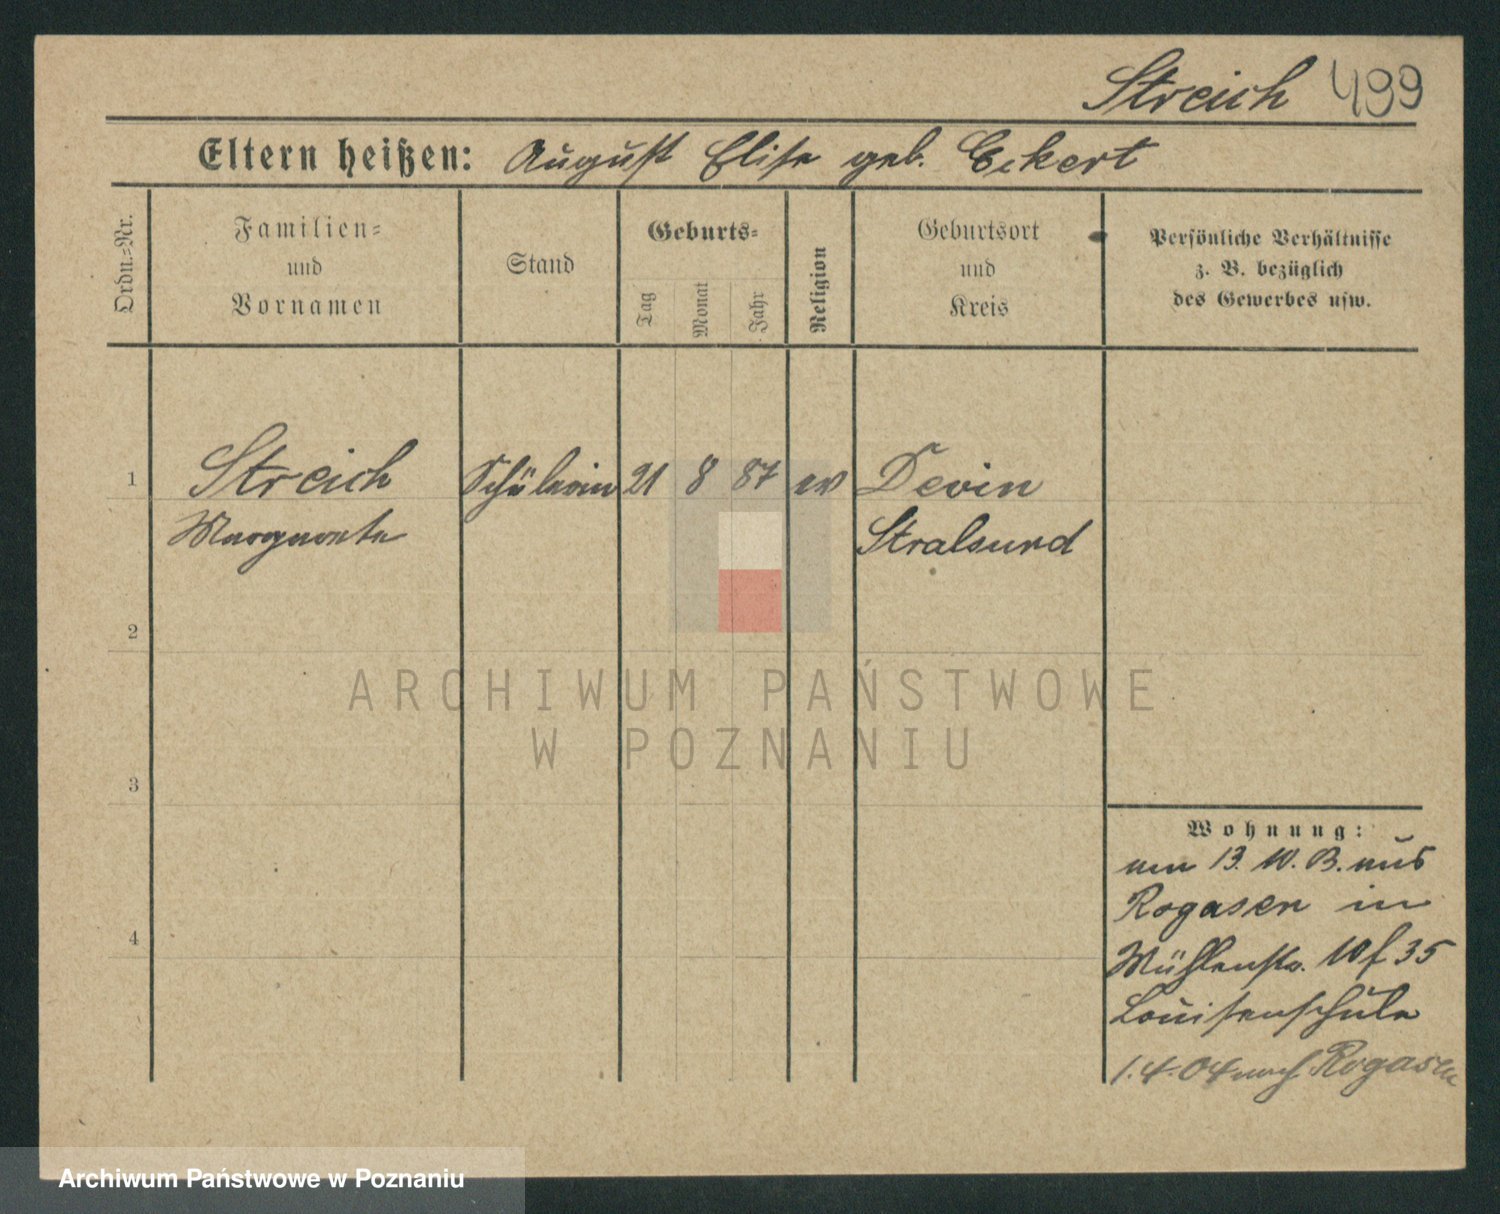 Streich 499
Eltern heißen: August Elise geb. Eckert
Ordn.=Nr.
Familien=
und
Vornamen
Stand
Geburts=
Tag
Monat
Jahr
Religion
Geburtsort
und
Kreis
Persönliche Verhältnisse
z. B. bezüglich
des Gewerbes usw.
1 Streich Schülerin 21 8 87 ev Devin
Margarete Stralsund
2
3
4
Wohnung:
am 13. 10. aus
Rogasen in
Mühlenstr. 35
Louisenschule
1.4.04 nach Rogasen
ARCHIWUM PAŃSTWOWE
W POZNANIU
Archiwum Państwowe w Poznaniu